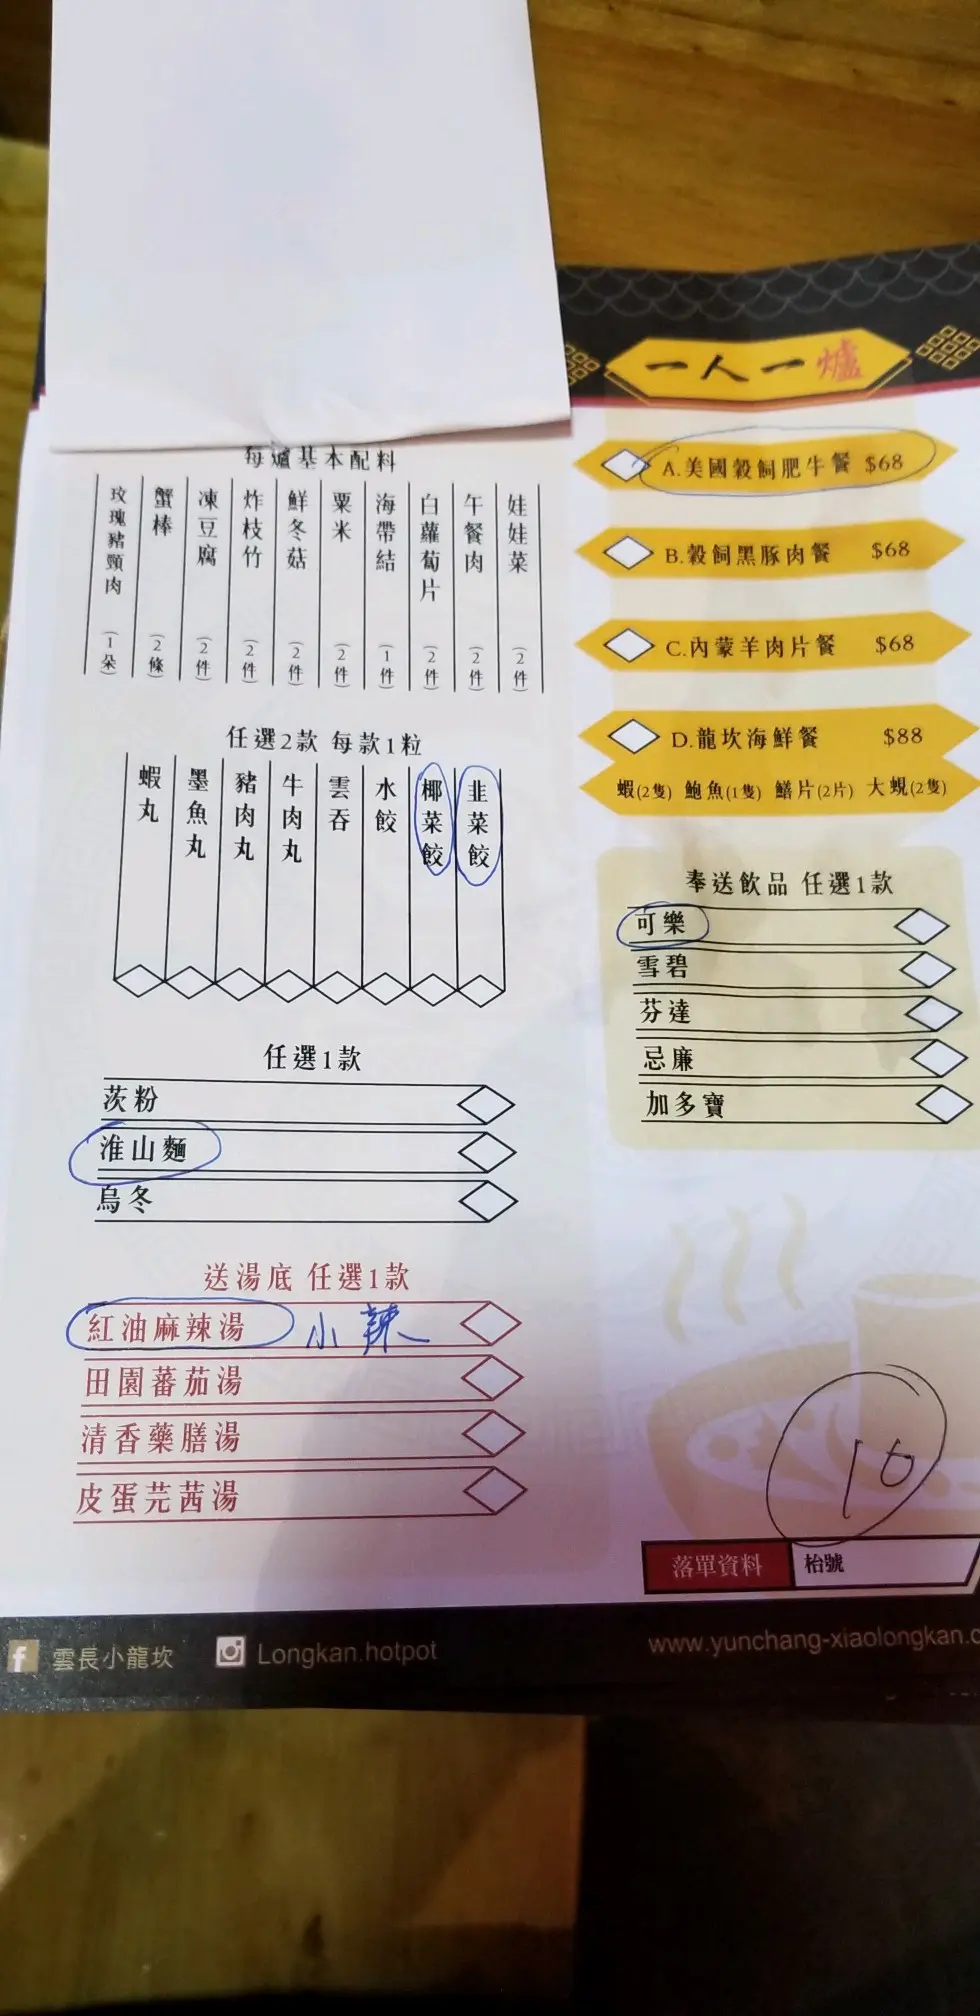 一人一爐
A.美國穀飼肥牛餐 $68
B.穀飼黑豚肉餐 $68
C.內蒙羊肉片餐 $68
D.龍坎海鮮餐 $88
蝦(2隻) 鮑魚(1隻) 鱔片(2片) 大蜆(2隻)
奉送飲品 任選1款
可樂
雪碧
芬達
忌廉
加多寶
每爐基本配料
娃娃菜 (2件)
午餐肉 (2件)
白蘿蔔片 (2件)
海帶結 (1件)
粟米 (2件)
鮮冬菇 (2件)
炸枝竹 (2件)
凍豆腐 (2件)
蟹棒 (2條)
玫瑰豬頸肉 (1朵)
任選2款 每款1粒
韭菜餃
椰菜餃
水餃
雲吞
牛肉丸
豬肉丸
墨魚丸
蝦丸
任選1款
茨粉
淮山麵
烏冬
送湯底 任選1款
紅油麻辣湯 小辣
田園蕃茄湯
清香藥膳湯
皮蛋芫茜湯
16
落單資料 枱號
雲長小龍坎 Longkan.hotpot www.yunchang-xiaolongkan.c